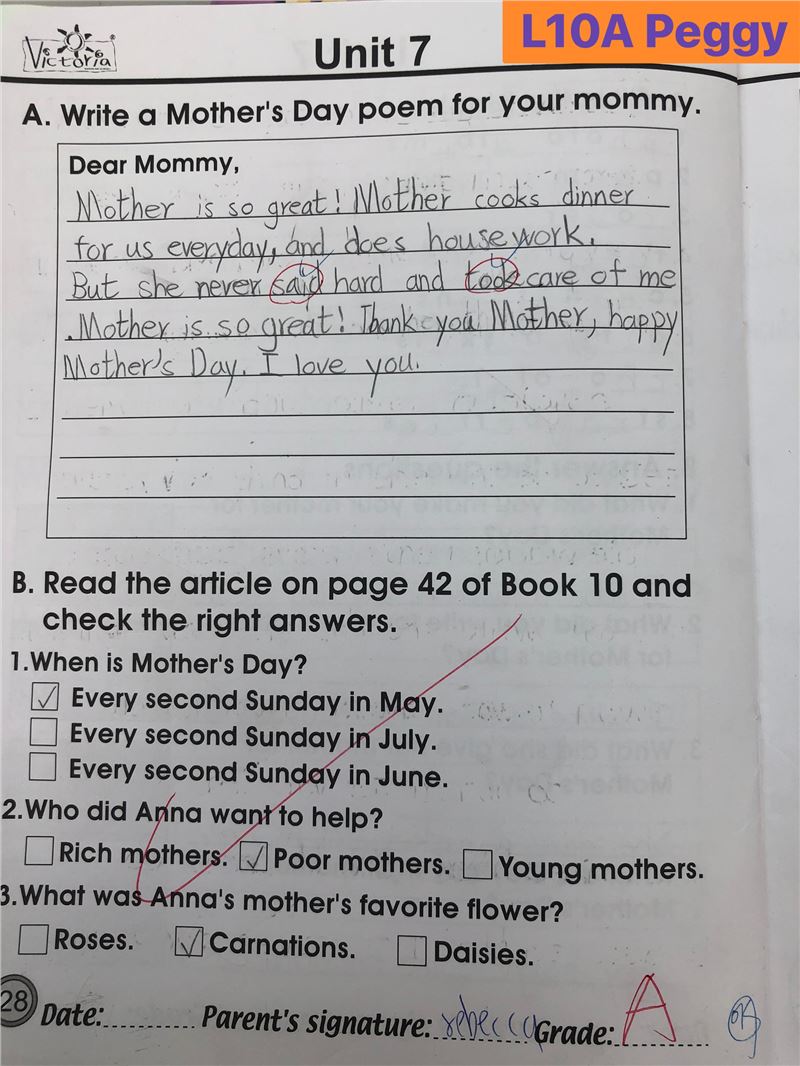 L10A Peggy
Victoria
Unit 7
A. Write a Mother's Day poem for your mommy.
Dear Mommy,
Mother is so great! Mother cooks dinner
for us everyday, and does housework.
But she never said hard and took care of me
. Mother is so great! Thank you Mother, happy
Mother's Day. I love you.
B. Read the article on page 42 of Book 10 and
check the right answers.
1.When is Mother's Day?
Every second Sunday in May.
Every second Sunday in July.
Every second Sunday in June.
2.Who did Anna want to help?
Rich mothers. Poor mothers. Young mothers.
3.What was Anna's mother's favorite flower?
Roses. Carnations. Daisies.
28 Date: Parent's signature: rebecca Grade: A